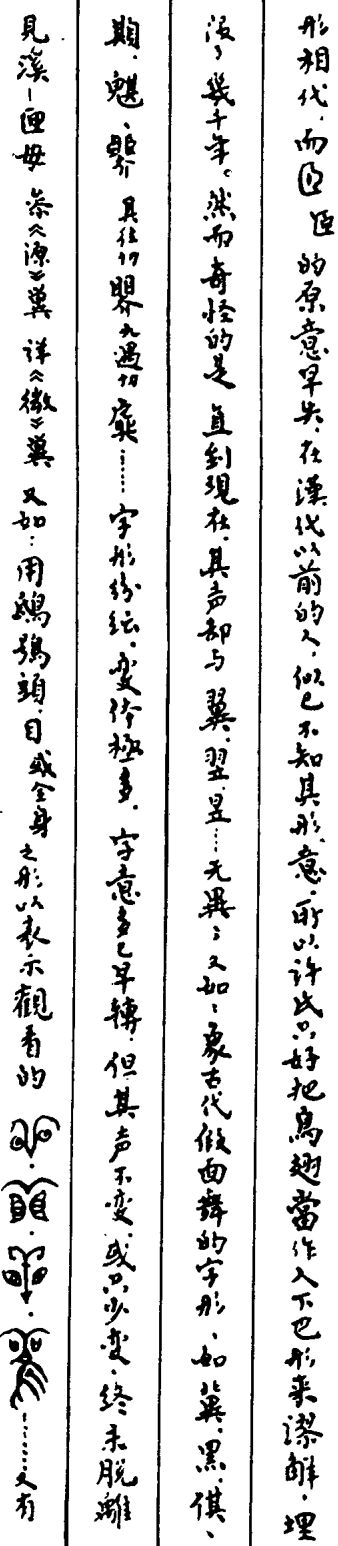 形相代，而 𦣞 的原意早失，在漢代以前的人，似已不知其形、意，所以許氏只好把鳥翅當作人下巴形來謬解，埋
沒了幾千年。然而奇怪的是 直到現在，其声却与 翼、翌、昱……无異；又如：象古代假面舞的字形，如 冀、黑、倛、
䫏、魌、 具往切 九遇切 ……字形紛紜，变体極多，字意多已早轉，但其声不变，或只少变，終未脱離
見溪—匣母 条《源》冀 詳《微》冀 又如：用鴟鴞頭、目 或全身之形以表示觀看的 ………又有